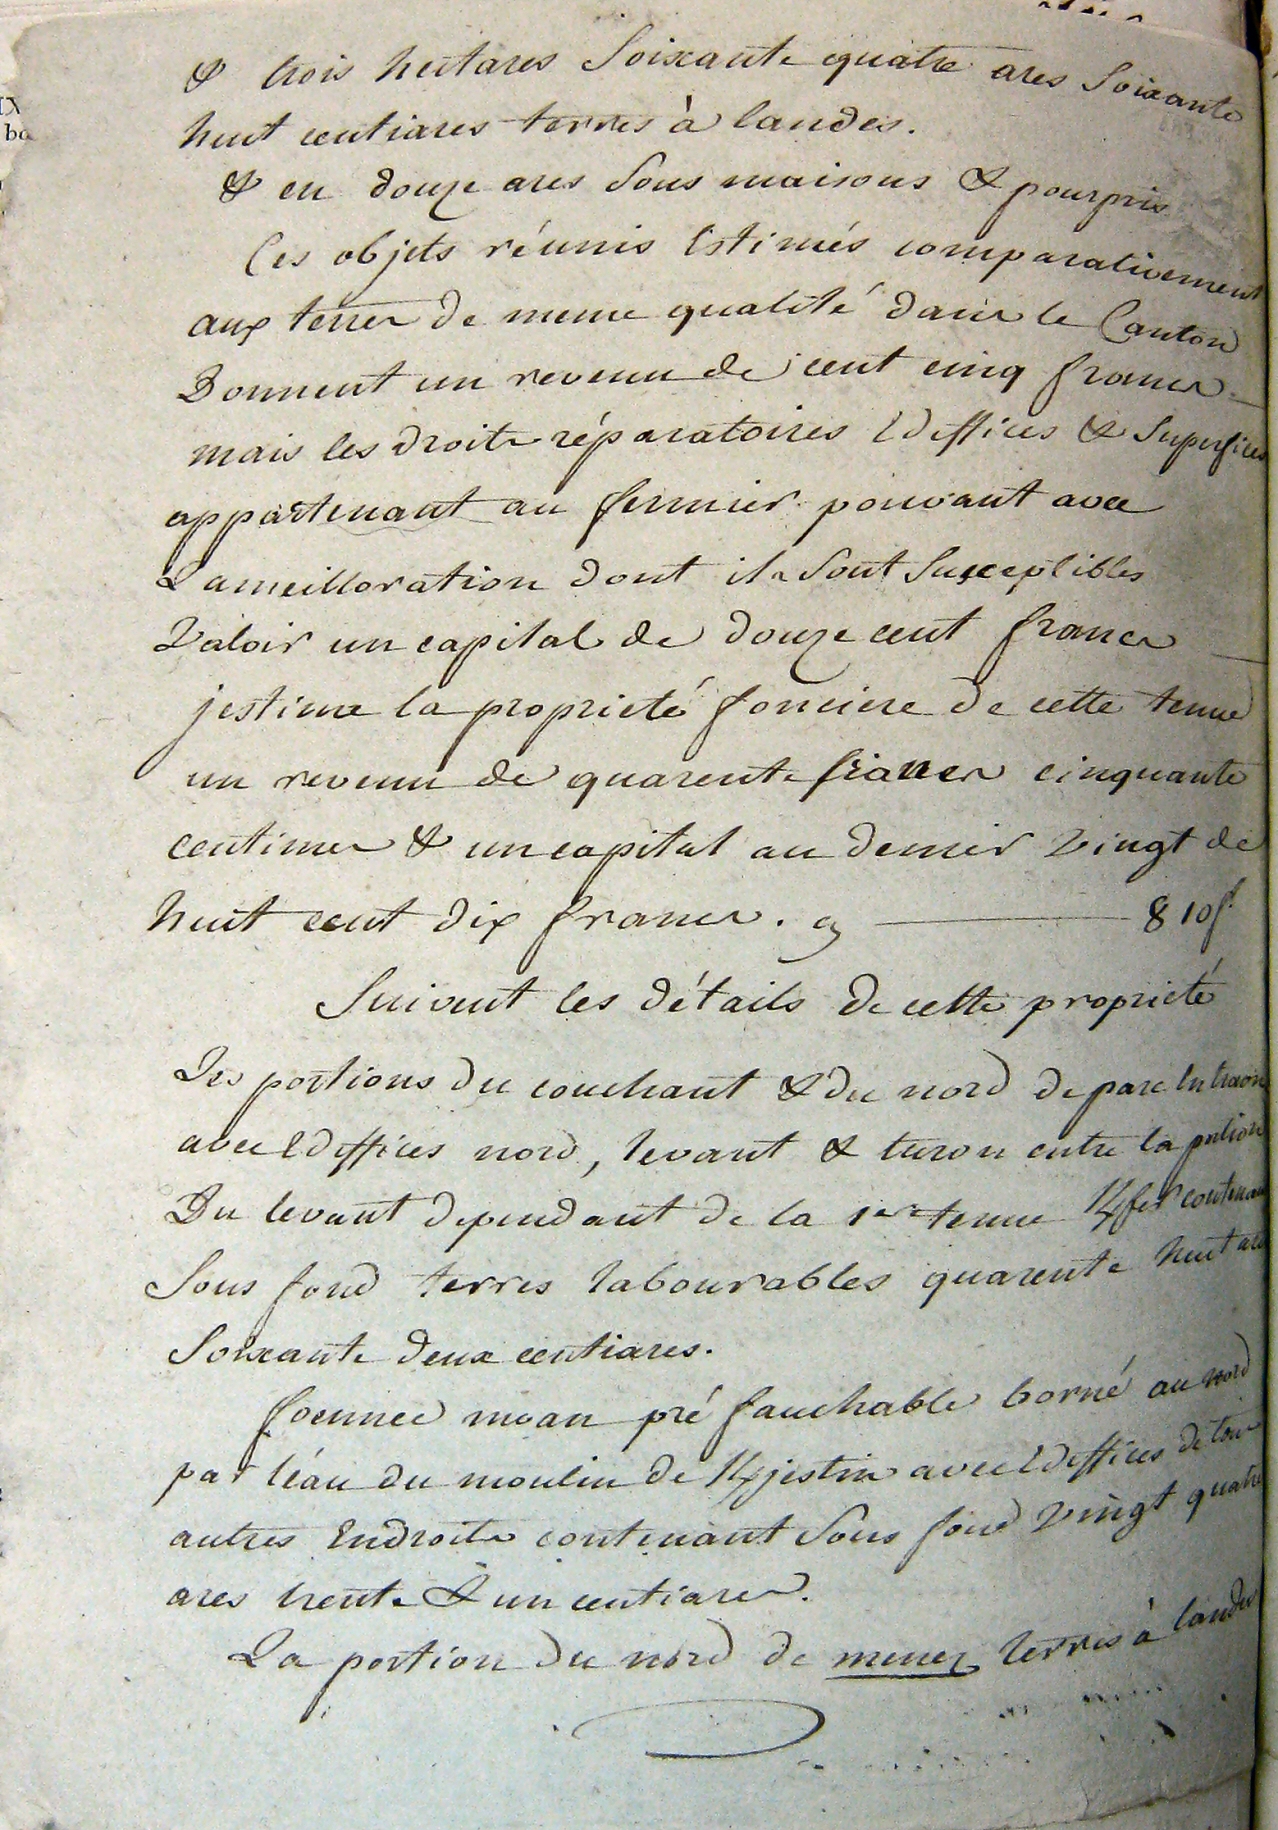 & trois hectares Soixante quatre ares Soixante
huit centiares terres à landes.
& en douze ares Sous maisons & pourpris
Ces objets réunis Estimés comparativement
aux terres de meme qualité dans le Canton
Donnent un revenu de cent cinq francs
mais les droits réparatoires Ediffices & Superfices
appartenant au fermier pouvant avec
L'ameilloration dont ils Sont Susceptibles
Valoir un capital de douze cent francs
jestime la proprieté fonciere de cette tenue
un revenu de quarente francs cinquante
centimes & un capital au denier Vingt de
huit cent dix francs. cy 810f
Suivent les détails de cette proprieté
Les portions du couchant & du nord de parc
avec Ediffices nord, levant & turon entre la portion
Du levant dependant de la 1ere tenue contenant
Sous fond terres labourables quarente huit ares
Soixante deux centiares.
foennec moan pré fauchable borné au nord
par léau du moulin de Kjestin avec Ediffices de tous
autres Endroits contenant Sous fond Vingt quatre
ares trente & un centiares.
La portion du nord de menez terres à landes